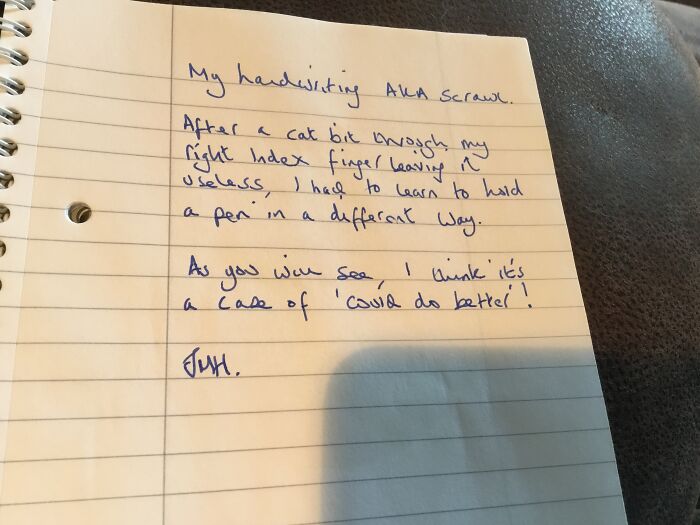 My handwriting AKA scrawl.
After a cat bit through my
right Index finger leaving it
useless, I had to learn to hold
a pen in a different way.
As you will see, I think it's
a case of 'could do better'!
JMH.